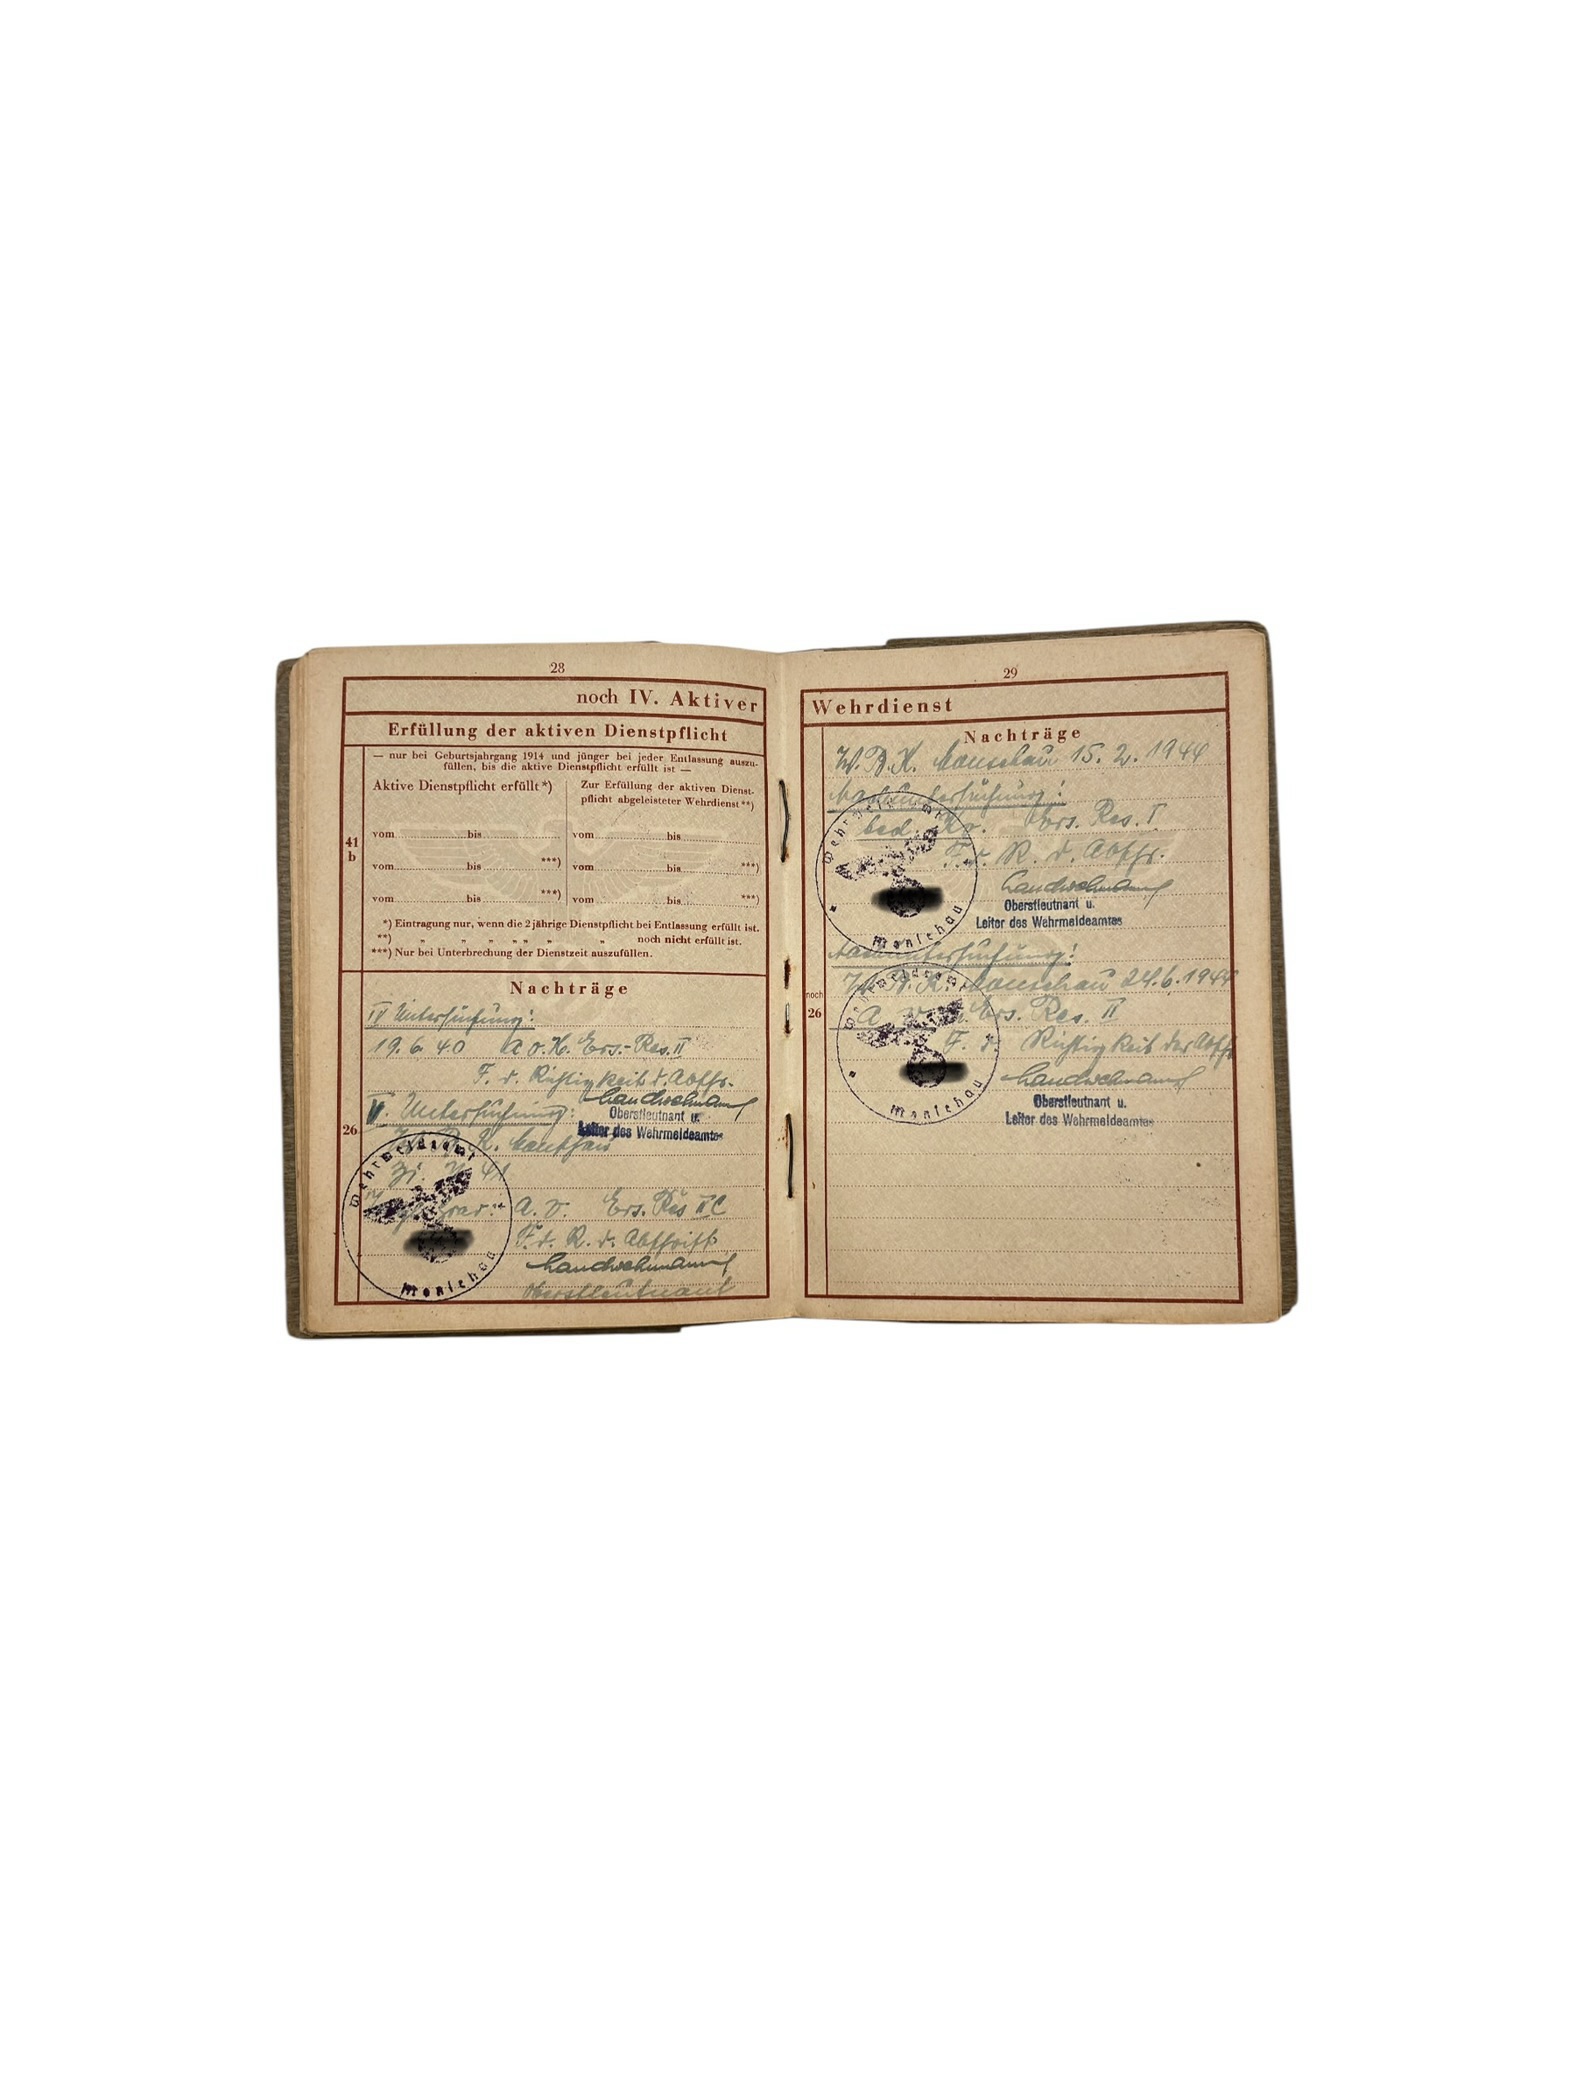 28
noch IV. Aktiver
Erfüllung der aktiven Dienstpflicht
— nur bei Geburtsjahrgang 1914 und jünger bei jeder Entlassung auszu-
füllen, bis die aktive Dienstpflicht erfüllt ist —
41
b
Aktive Dienstpflicht erfüllt*)
Zur Erfüllung der aktiven Dienst-
pflicht abgeleisteter Wehrdienst**)
vom bis vom bis
vom bis ***) vom bis ***)
vom bis ***) vom bis ***)
*) Eintragung nur, wenn die 2jährige Dienstpflicht bei Entlassung erfüllt ist.
**) „ „ „ „ „ „ „ noch nicht erfüllt ist.
***) Nur bei Unterbrechung der Dienstzeit auszufüllen.
Nachträge
IV Untersuchung:
19.6.40 Ers.-Res. II
F. d. Richtigkeit d. Abschr.
Landwehrmann
Oberstleutnant u.
Leiter des Wehrmeldeamtes
V. Untersuchung:
26
W. B. K. Monschau
41
A. v. Ers. Res II C
F. d. R. d. Abschrift
Landwehrmann
Oberstleutnant
Wehrmeldeamt
Monschau
29
Wehrdienst
Nachträge
W. B. K. Monschau 15.2.1944
Nachuntersuchung:
bed. Kv. Ers. Res. I
F. d. R. d. Abschr.
Landwehrmann
Oberstleutnant u.
Leiter des Wehrmeldeamtes
Wehrmeldeamt
Monschau
Nachuntersuchung:
W. B. K. Monschau 24.6.1944
noch
26
A. v. Ers. Res. II
F. d. Richtigkeit der Abschr
Landwehrmann
Oberstleutnant u.
Leiter des Wehrmeldeamtes
Wehrmeldeamt
Monschau